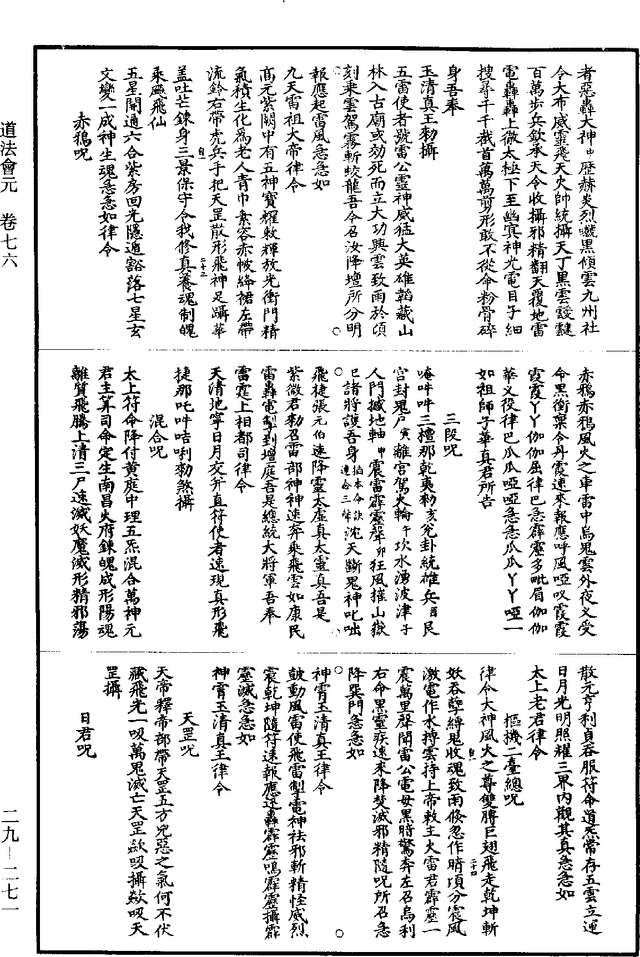 道法會元　卷七六
者惡轟大神申歷赫炎烈㘊黑傾雲九州社
令大布威靈飛天火帥統攝天丁黑雲靉靆
百萬步兵欽承天令收攝邪精翻天覆地雷
電轟轟上徹太極下至幽冥神光電目子細
搜尋千千截首萬萬剪形敢不從命粉骨碎
身吾奉
玉清真王勑攝
五雷使者號雷公靈神威猛大英雄韜藏山
林入古廟或効死而立大功興雲致雨於頃
刻乘雲駕霧斬蛟龍吾今召汝降壇所分明
報應起雷風急急如
九天雷祖大帝律令
高元紫闕中有五神寶耀敕輝放光衝門精
氣積生化為老人青巾素容赤帔絳裙左帶
流鈴右帶虎兵手把天罡散形飛神足躡華
蓋吐芒鍊身三景保守令我修真養魂制魄
乘飈飛仙
五星開通六合紫房回光隱遁豁落七星玄
文變一成神生魂急急如律令
赤鴉呪
赤鴉赤鴉風火之車雷中烏鬼雲外夜叉受
命黑銜稟令丹霞速來報應呼風啞以霞霞
霞霞丫丫伽伽屈律巴急霹靂多毗眉伽伽
華文役律巴瓜瓜啞啞急急瓜瓜丫丫啞一
如祖師子華真君所告
三叚呪
唵吽吽三檀那乾夷勒亥兊卦統雄兵酉艮
宮封鬼戶寅離宮駕火輪午坎水湧波津子
人門撼地軸申震雷霹靂聲卯狂風摧山嶽
巳諸將護吾身沈天斷鬼神叱咄
飛捷張元伯速降靈太虛真太靈真吾是
紫微君勑召雷部神神速奔乘飛雲如康民
雷轟電掣到壇庭吾是總統大將軍吾奉
雷霆上相都司律令
天清地寧日月交并直符使者速現真形飛
捷那吒吽咭唎勑煞攝
混合呪
太上符命降付黃庭中理五炁混合萬神元
君主算司命定生南昌火府鍊魄成形陽魂
離質飛騰上清三尸速滅妖魔滅形精邪蕩
散元亨利貞吞服符命道炁常存五雲立運
日月光明照耀三界內觀其真急急如
太上老君律令
樞機二臺總呪
律令大神風火之尊雙膊巨翅飛走乾坤斬
妖吞孽縛鬼收魂致雨倏忽作晴頃分震風
激電作水摶雲持上帝敕主火雷君霹靂一
震萬里聲聞雷公電母黑暗驚奔左召烏利
右命黑靈疾速來降焚滅邪精隨呪所召急
降巽門急急如
神霄玉清真王律令
鼓動風雷使飛雷掣電神祛邪斬精怪威烈
震乾坤隨符速報應迄轟霹靂鳴霹靂攝霹
靂滅急急如
神霄玉清真王律令
天罡呪
天帝釋帝部帶天罡五方兇惡之氣何不伏
藏飛光一吸萬鬼滅亡天罡歘吸攝歘吸天
罡攝
日君呪
二九—二七一